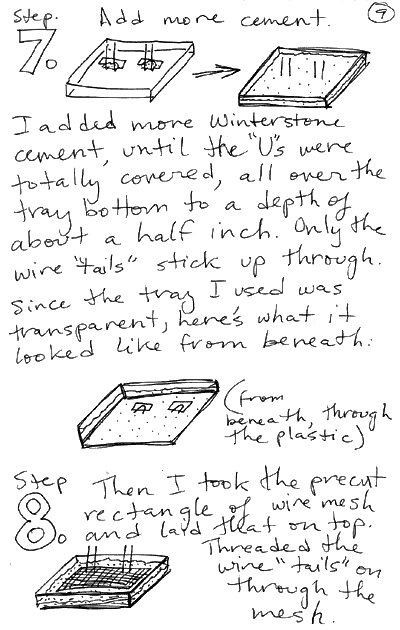 Step 7. Add more cement. 9
I added more Winterstone
cement, until the "U"s were
totally covered, all over the
tray bottom to a depth of
about a half inch. Only the
wire "tails" stick up through.
Since the tray I used was
transparent, here's what it
looked like from beneath:
(from
beneath, through
the plastic)
Step 8. Then I took the precut
rectangle of wire mesh
and laid that on top.
Threaded the
wire "tails" on
through the
mesh.